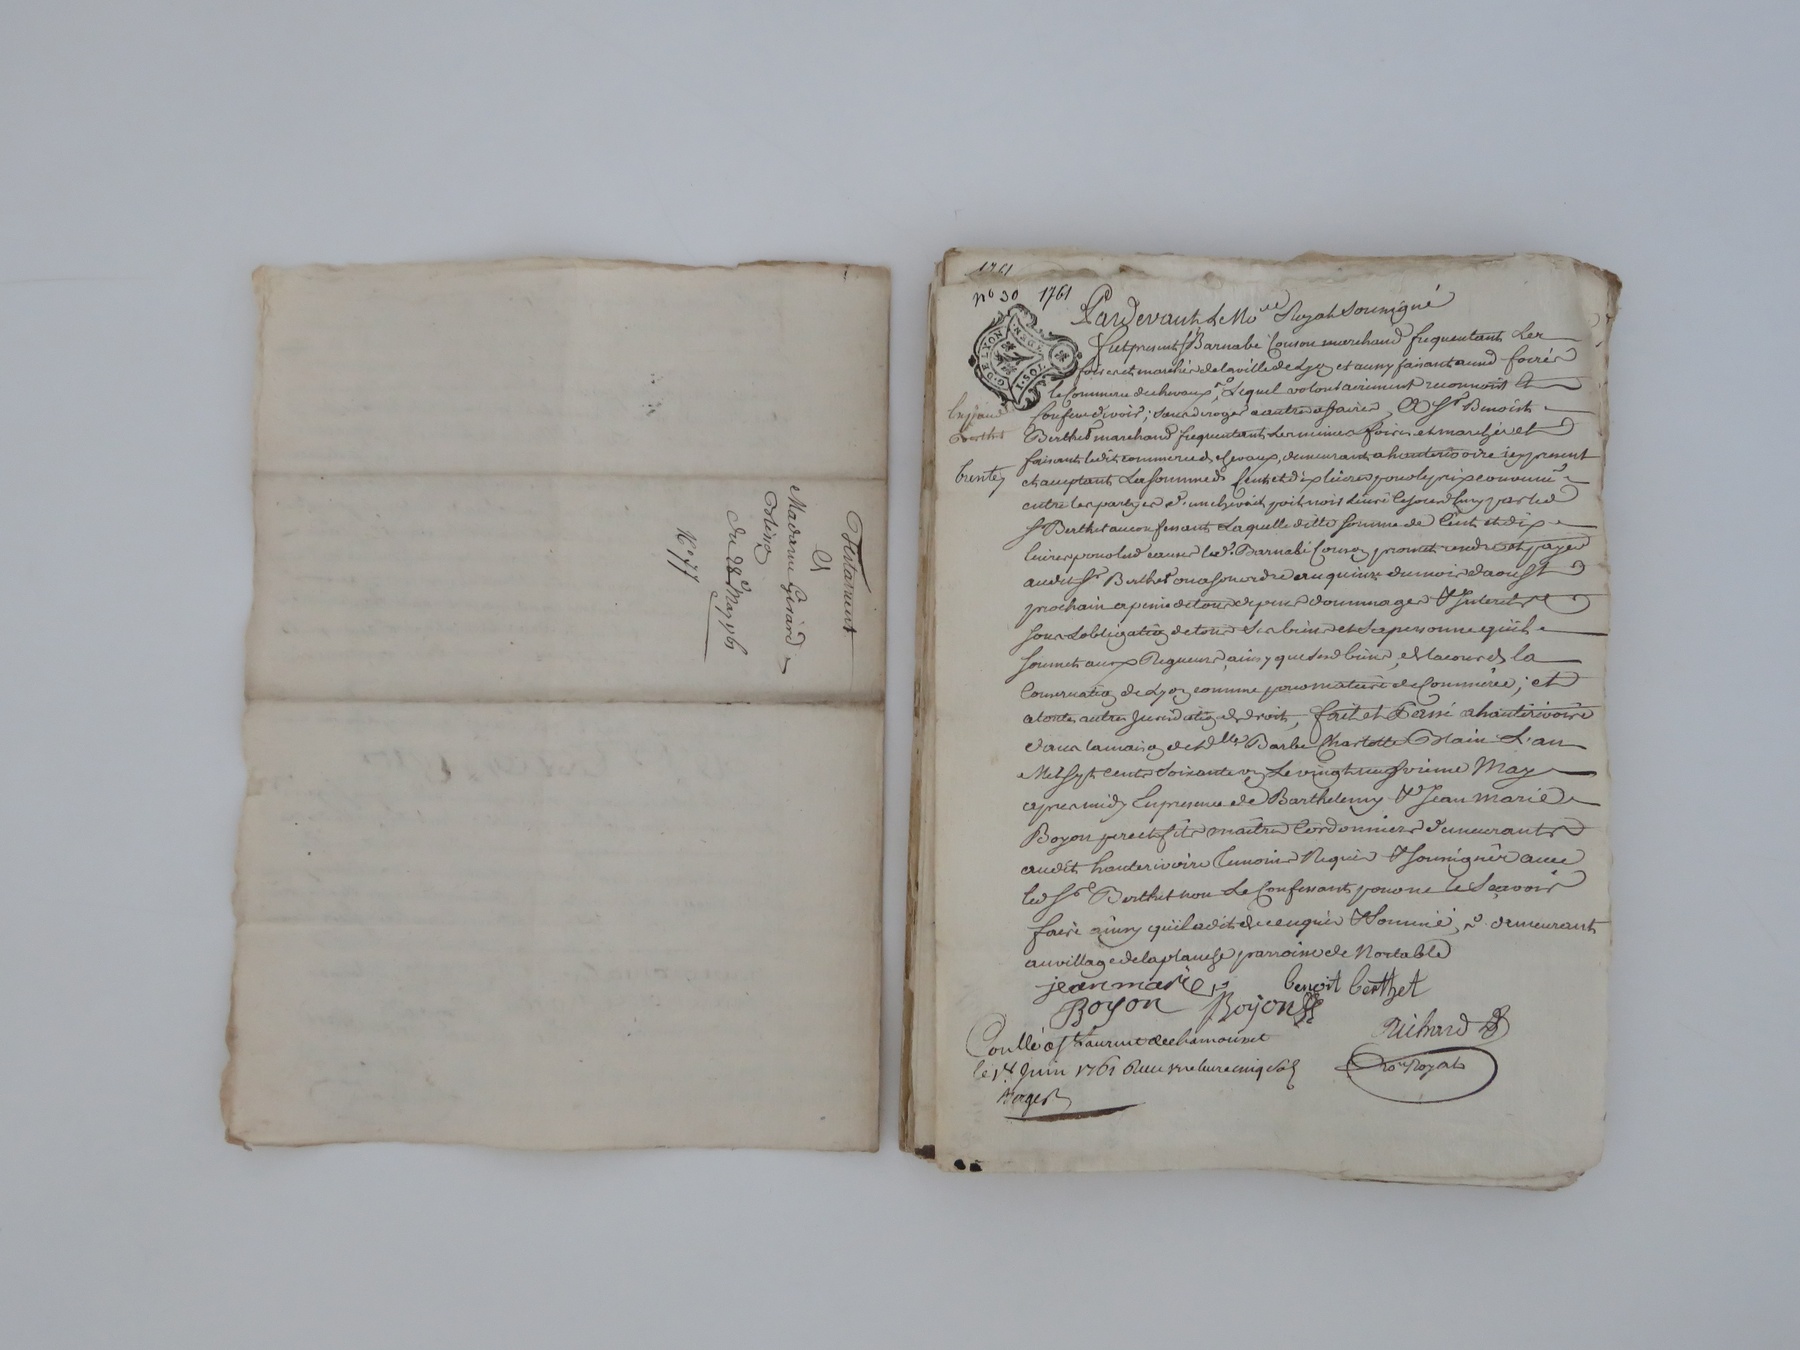 Testament
De
Madame Girard
Du 28e May 1761
N° 77
1761
n° 30 1761
G. DE LYON
1. SOL
Pardevant Le No.re Royal Soussigné
fut present Sr Barnabé Couson marchand frequentant Les
foires et marchés de la ville de Lyon et aussy faisant auxd foires
le Commerce de chevaux, Lequel volontairement reconnoit et
Confesse devoir, sans deroger a autres affaires, A Sr Benoist
Berthet marchand frequentant les memes foires et marchés et
faisant ledit commerce de chevaux, demeurant a hauterivoire icy present
et acceptant La somme de Cent et dix livres pour le prix convenu
entre les parties d'un cheval poil noir Livré Cejourd'huy par led
Sr Berthet au confessant Laquelle ditte somme de Cent et dix
livres pour led cause led Sr Barnabé Couson promet rendre et payer
audit Sr Berthet ou a son ordre au quinze du mois d'aoust
prochain a peine de tous depens dommages & Interets
sous Lobligation de tous Ses biens et Sa personne qu'il
soumet aux Rigueurs, ainsy que sesd biens, de la cour de la
Conservation de Lyon comme pour matiere de Commerce; et
a toutes autres Jurisdictions de droit, fait et Passé a hauterivoire
dans la maison de dlle Barbe Charlotte Blain L'an
Mil sept cents Soixante un Le vingt neufvieme May
apres midy En presence de Barthelemy & Jean Marie
Boyon pere et fils maitres Cordonniers demeurants
audit hauterivoire Temoins Requis & soussignés avec
led Sr Berthet non Le Confessant pour ne le Scavoir
faire ainsy qu'il a dit de ce enquis & sommé, demeurant
au village de la planche parroisse de Noetable
jean marie benoit berthet
Boyon Boyon
Richard
Nore Royal
Conllé a St Laurent de chamousset
le 1er Juin 1761 Reçu une livre cinq sols
Berger
Berthet
trente